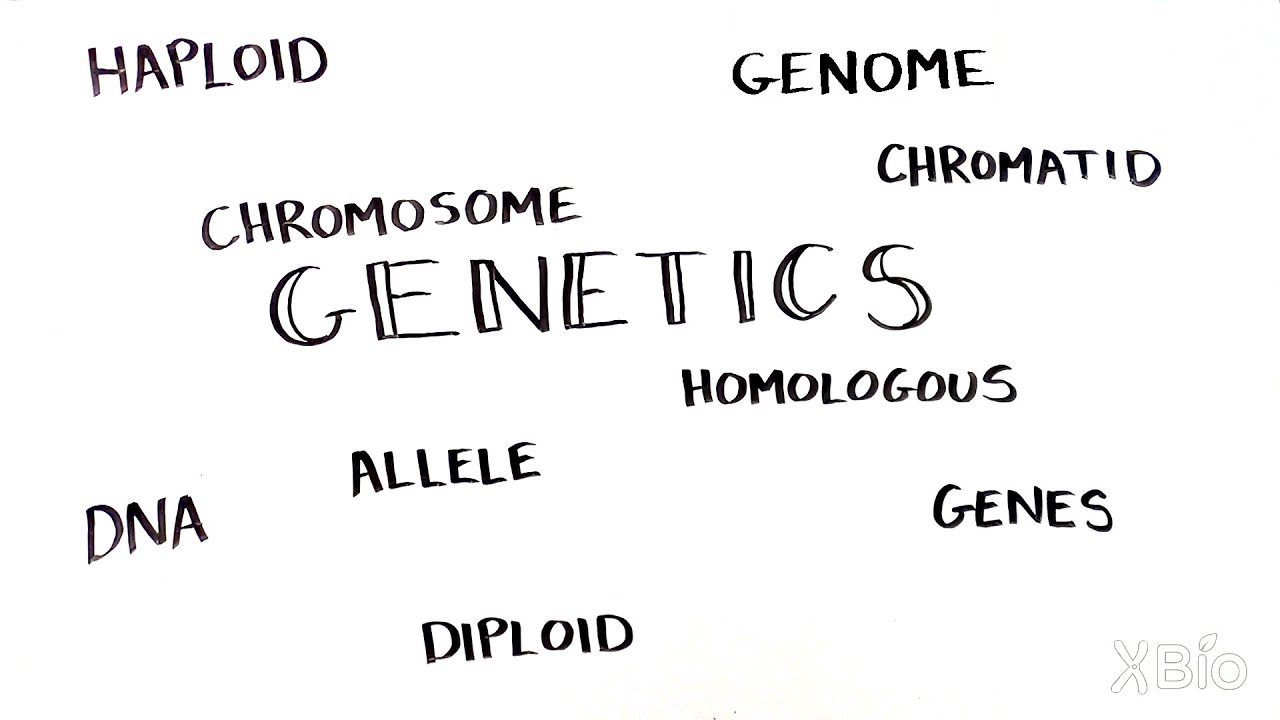 HAPLOID
GENOME
CHROMATID
CHROMOSOME
GENETICS
HOMOLOGOUS
ALLELE
DNA
GENES
DIPLOID
XBio